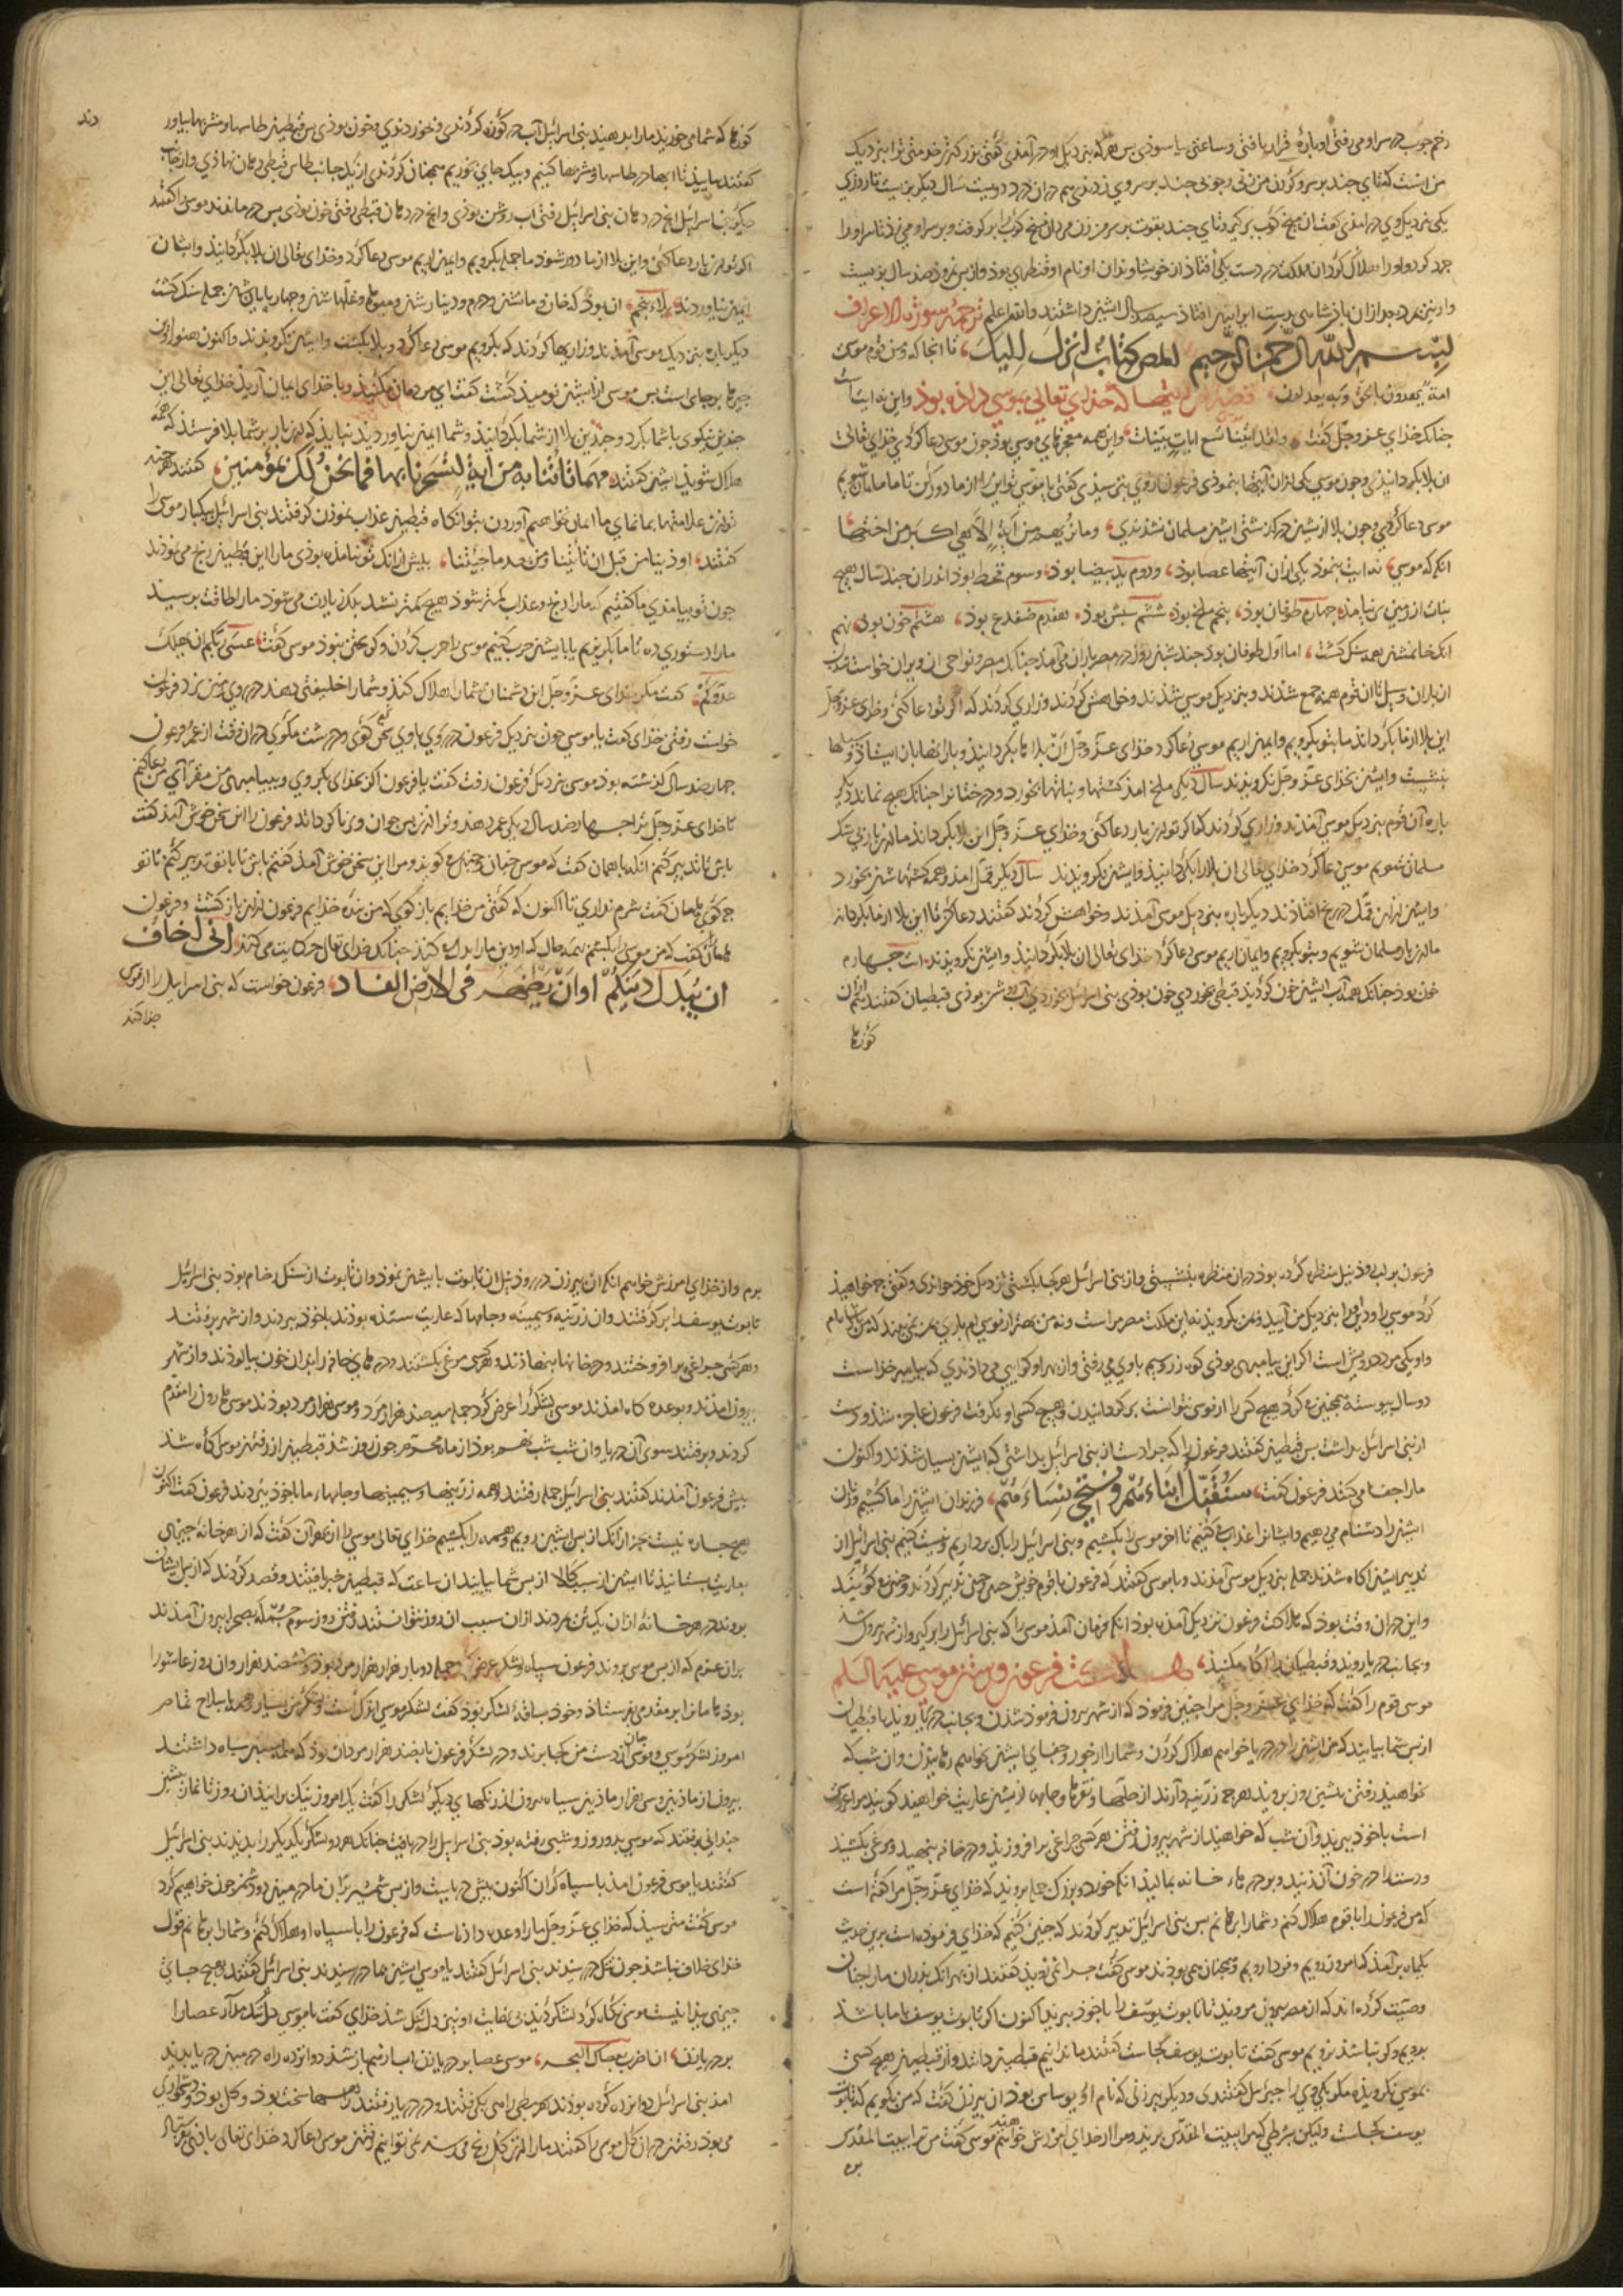 زخم چوب در سر او می رفتی او پاره قرار یافتی و ساعتی بیاسوذی پس هر که بنزدیک او در آمذی گفتی بزرکتر خدمتی ترا بنزدیک
من آنست که تای چند بر سر و کردن من زنی و چوبی چند بر سر وی زدندی هم در ان درد دویست سال دیکر بزیست تا روزی
یکی نزدیک وی در امذ وی کفت ان میخ کوب بر کیر و تای چند بقوت بر سر من زن مرد ان میخ کوب بر کرفت و بر سر او می زد تا سر او را
خرد کرد و او را هلاک کردان مملکت در دست یکی افتاذ از خویشاوندان او نام او قنطرای بوذ و از پس نمرود صذ سال بزیست
ترجمهٔ سورة الاعراف
بسم الله الرحمن الرحیم المص کتاب انزل الیک، تا انجا که ومن قوم موسی
امة یهدون بالحق وبه یعدلون قصه آیتها که خذای تعالی بموسی داذه بوذ و این نه ایت
چنانک خذای عز وجل کفت ولقد اتینا موسی تسع ایات بینات، و این همه معجزهای موسی بوذ چون موسی دعا کردی خذای تعالی
ان بلا بکردانیذی و چون موسی یکی از ان آیتها بنموذی فرعون از وی بترسیذی کفتی یا موسی تو این از ما دور کن تا ما مسلمان شویم
موسی دعا کردی و چون بلا ازیشان در کذشتی ایشان مسلمان نشدندی وما نریهم من آیة الا هی اکبر من اختها
انکه که موسی نه ایت بنموذ یکی از ان آیتها عصا بوذ، و دوم ید بیضا بوذ، و سوم قحط بوذ اندران چند سال هیچ
نبات از زمین بر نیامذ، چهارم طوفان بوذ، پنجم ملخ بوذ، ششم سبش بوذ، هفتم ضفدع بوذ، هشتم خون بوذ، نهم
انک خانمشان همه سنک کشت، اما اول طوفان بوذ چند شبان روز در مصر باران می آمذ چنانک مصر و نواحی ان ویران خواست شدن
از باران و سیل تا ان قوم همه جمع شذند و بنزدیک موسی شذند و خواهش کردند و زاری کردند که اکر تو دعا کنی و خذای عز وجل
این بلا از ما بکرداند ما بتو بکرویم و ایمان اریم موسی دعا کرد خذای عز وجل آن بلا را بکردانیذ و بارانها باز ایستاذ و سیلها
بنشست و ایشان بخذای عز وجل نکرویذند سال دیکر ملخ امذ کشتها و نباتها بخورد و درختانرا چنانک هیچ نماند دیکر
باره آن قوم بنزدیک موسی آمذند و زاری کردند که اکر تو این بار دعا کنی و خذای عز وجل این بلا بکرداند ما این بار بی شک
مسلمان شویم موسی دعا کرد خذای تعالی ان بلا را بکردانیذ و ایشان نکرویذند سال دیکر قمل امذ و همه کشتهاشان بخورد
و ایشان از این قمل در رنج افتاذند دیکر باره بنزدیک موسی آمذند و خواهش کردند کفتند دعا کن تا این بلا از ما بکرداند
ما این بار مسلمان شویم و بتو بکرویم و ایمان اریم موسی دعا کرد خذای تعالی ان بلا بکردانیذ و ایشان نکرویذند ایت چهارم
خون بوذ چنانک همه آب ایشان خون کردیذ قبطی بخوردی خون بوذی بنی اسرائیل بخوردی آب روشن بوذی قبطیان کفتند از ان
کوزها
کوزها که شما می خوریذ ما را بدهیذ بنی اسرائیل آب در کوزه کردندی و خوردندی و خون بوذی پس قبطیان طاسها و مشربها بیاور
دند
کفتند بیاییذ تا ابها در طاسها و مشربها کنیم و بیک جای بخوریم همچنان کردندی از یک جانب طاس قبطی دهان نهاذی و از جانب
دیکر بنی اسرائیل انچ در دهان بنی اسرائیل رفتی اب روشن بوذی و انچ در دهان قبطی رفتی خون بوذی پس درماندند و موسی را کفتند
اکر تو این بار دعا کنی و این بلا از ما دور شوذ ما جمله بکرویم و ایمان اریم موسی دعا کرد و خذای تعالی ان بلا بکردانیذ و ایشان
ایمان نیاوردند، بلاء پنجم ان بوذ که خان و ماشان و درم و دینارشان و میوها و غلهاشان و چهارپایانشان جمله سنک کشت
دیکر باره بنزدیک موسی آمذند و زاریها کردند که بکرویم موسی دعا کرد و بلا بکشت و ایشان نکرویذند و اکنون هنوز از ان
چیزها بر جای است پس موسی از ایشان نومیذ کشت کفت ای مردمان مکنیذ و با خذای ایمان آریذ خذای تعالی این
چندین نیکوی با شما بکرد و چندین بلا از شما بکردانیذ و شما ایمان نیاوردید نبایذ که این بار بر شما بلا فرستذ که همه
هلاک شویذ ایشان کفتند، مهما تأتنا به من آیة لتسحرنا بها فما نحن لک بمؤمنین، کفتند هر چند
تو ازین علامتها بما نمای ما ایمان نخواهیم آوردن بتو انکاه قبطیان عذاب نموذن کرفتند بنی اسرائیل بیکبار موسی را
کفتند، اوذینا من قبل ان تأتینا ومن بعد ما جئتنا، پیش از انک تو نیامذه بوذی ما را این قبطیان رنج می نموذند
چون تو بیامذی ما کفتیم که ما را رنج و عذاب کمتر شوذ هیچ کمتر نشد بلک زیادت می شوذ ما را طاقت برسید
ما را دستوری ده تا ما بکریزیم یا با ایشان حرب کنیم موسی را حرب کردن و کریختن نبوذ موسی کفت عسی ربکم ان یهلک
عدوکم، کفت مکر خذای عز وجل این دشمنان شما را هلاک کنذ و شما را خلیفتی دهند در روی زمین
خواست رفتن خذای کفت یا موسی چون بنزدیک فرعون در شوی با وی سخن نرم کوی و درشت مکوی در ان وقت از عمر فرعون
چهار صد سال کذشته بوذ موسی نزدیک فرعون رفت کفت یا فرعون اکر بخذای بکروی و بپیامبری من مقر آیی من دعا کنم
تا خذای عز وجل ترا چهار صد سال دیکر عمر دهذ و ترا از پس جوان و برنا کرداند فرعون را این سخن خوش آمذ کفت
باش تا تدبیر کنم انکه با هامان کفت که موسی چنان و چنین می کویذ و مرا این سخن خوش آمذ کفتم باش تا با تو تدبیر کنم تا تو
چه کوی هامان کفت شرم نداری تا اکنون که کفتی من خذایم باز کوی که من بنده خذایم فرعون از این باز کشت و فرعون
هامان کفت که من موسی را بکشم بهمه حال که او دین ما را بدل کند چنانک خذای تعالی حکایت می کند انی اخاف
ان یبدل دینکم او ان یظهر فی الارض الفساد، فرعون خواست که بنی اسرائیل را از موسی
جدا کند
فرعون بر لب روذ نیل منظره کرده بوذ در ان منظره بنشستی و از بنی اسرائیل هر که بکذشتی نزدیک خوذ خواندی و کفتی چه خواهیذ
کرد موسی را و دین او را بنزدیک من آییذ و بمن بکرویذ نه این مملکت مصر مراست و نه من بهتر از موسی ام
و او یکی مرد درویش است اکر این پیامبری بوذی کوه زر و سیم با وی می رفتی و از بهر او کوایی می دهندی که پیامبر خذاست
دو سال پیوسته همچنین می کرد هیچ کس را از موسی نتوانست بر کردانیدن و هیچ کس باو نکرفت فرعون عاجز شذ و دست
از بنی اسرائیل بداشت پس قبطیان کفتند فرعون را که چرا دست از بنی اسرائیل بداشتی که ایشان بسیار شذند و اکنون
ما را جفا می کنند فرعون کفت، سنقتل ابناءهم ونستحیی نساءهم، فرزندان ایشان را ما کشیم و زنان
ایشان را دشنام می دهیم و ایشانرا عذاب می کنیم تا اخر موسی را بکشیم و بنی اسرائیل را باک برداریم و نیست کنیم بنی اسرائیل از
تدبیر ایشان اکاه شذند جمله بنزدیک موسی آمذند و با موسی کفتند که فرعون با قوم خویش چنین تدبیر کردند و چنین می کویند
و این در ان وقت بوذ که هلاکت فرعون نزدیک آمذه بوذ انکه فرمان آمذ موسی را که بنی اسرائیل را بر کیر و از شهر بیرون شذ
و بجانب دریا رویذ و قبطیان را اکاه مکنیذ، هلاکت فرعون و رستن موسی علیه السلم
موسی قوم را کفت که خذای عز وجل مرا چنین فرموذ که از شهر بیرون فرموذ شدن و بجانب دریا رویذ با قبطیان
از پس شما بیایند که من ایشان را در دریا خواهم هلاک کردن و شما را از جور و جفای ایشان خواهم رهانیذن و ان شب که
بخواهیذ رفتن پیشین روز بروند هر چه زرینه دارند از حلیها و نقرها و جامه از ایشان عاریت خواهیذ کوییذ ما را عروسی
است با خوذ ببریذ و آن شب که خواهیذ از شهر بیرون رفتن هر کسی چراغی بر افروزیذ و در خانه بنهیذ و مرغی بکشیذ
و دستها در خون آن زنیذ و بر درهاء خانه بمالیذ انکه خرد و بزرک جمله برویذ که خذای عز وجل مرا کفته است
که من فرعون را با قوم هلاک کنم و شما را برهانم پس بنی اسرائیل تدبیر کردند که چنین کنیم که خذای فرموده است برین حدیث
یکماه بر آمذ که امروز رویم و فردا رویم و همچنان می بوذند موسی کفت چرا نمی رویذ کفتند از بهر انک پذران ما را چنان
وصیت کرده اند که از مصر بیرون مرویذ تا تابوت یوسف را با خوذ ببریذ اکنون اکر تابوت یوسف با ما باشذ
برویم و کر نباشذ نرویم موسی کفت تابوت یوسف کجاست کفتند ما ندانیم قبطیان دانند و از قبطیان هیچ کس
بموسی نکرویذه مکر یکی وی را جبرئیل کفتندی و دیکر پیرزنی که نام او بوساس بوذ ان پیرزن کفت که من بکویم که تابوت
یوسف کجاست ولیکن بشرطی که مرا ببیت المقدس بریذ و مرا از خذای امرزش خواهیذ موسی کفت من ترا ببیت المقدس
برم
برم و از خذای امرزش خواهم انکه ان پیرزن در روذ نیل ان تابوت بایشان نموذ و ان تابوت از سنک رخام بوذ بنی اسرائیل
تابوت یوسف را بر کرفتند و ان زرینه و سیمینه و جامها که عاریت ستذه بوذند با خوذ ببردند و از شهر برفتند
و هر کسی چراغی بر افروختند و در خانها بنهاذند و هر کسی مرغی بکشتند و درهای خانه را بذان خون بیالوذند و از شهر
بیرون امذند و بوعده کاه امذند موسی لشکر را عرض کرد جمله سیصد هزار مرد و موسی هزار مرد بوذند موسی هارون را مقدم
کردند و برفتند سوی آن دریا و ان شب شب نهم بوذ از ماه محرم چون روز شذ قبطیان از رفتن موسی اکاه شذ
پیش فرعون آمذند کفتند بنی اسرائیل جمله رفتند و همه زرینها و سیمینها و جامهاء ما با خوذ ببردند فرعون کفت اکنون
هیچ چاره نیست جز از انک از پس ایشان رویم و همه را بکشیم خذای تعالی موسی را از بهر آن کفت که از هر خانه چیزی
بعاریت بستانیذ تا ایشان از سبب کالا از پس شما بیایند ان ساعت که قبطیان خبر یافتند و قصد کردند که از پس ایشان
بروند در هر خانهٔ از ان یک تن بمردند از ان سبب ان روز نتوانستند رفتن روز سوم جمله بصحرا بیرون آمذند
بر ان عزم که از پس موسی بروند فرعون سپاه و لشکر عرض کرد جمله دو بار هزار هزار مرد بوذ و ششصد هزار و ان روز عاشورا
بوذ هامان را بر مقدمه بفرستاذ و خوذ بساقهٔ لشکر بوذ کفت لشکر موسی اندک است و لشکر من بسیار و همه با سلاح تمام
امروز لشکر موسی و موسی جان از دست من کجا برند و در لشکر فرعون پانصد هزار مردان بوذ که همه اسپ سیاه داشتند
بیرون از ماذینان و سی هزار ماذینان سیاه بیرون از رنکهای دیکر لشکر را کفت یک امروز نیک برانیذ ان روز تا نماز پیشین
چندانی برفتند که موسی بدو روز و شبی رفته بوذ بنی اسرائیل را دریافت چنانک هر دو لشکر یکدیکر را بدیذند بنی اسرائیل
کفتند یا موسی فرعون امذ با سپاه کران اکنون پیش دریاست و از پس شمشیر بران ما در میان دو دشمن چون خواهیم کرد
موسی کفت مترسیذ که خذای عز وجل ما را وعده داذه است که فرعون را با سپاه او هلاک کنم و شما را برهانم قول
خذای خلاف نباشذ چون تنک در رسیذند بنی اسرائیل کفتند یا موسی ایشان ها در رسیذند بنی اسرائیل کفتند هیچ جای
چیزی پذیذ نیست موسی نکاه کرد لشکر دیذ بی نهایت او نیز دل تنک شذ خذای کفت یا موسی دل تنک مدار عصا را
بر دریا زن، ان اضرب بعصاک البحر، موسی عصا بر دریا زد اب از هم باز شذ دوانزده راه در میان دریا پدید
امذ بنی اسرائیل دوانزده کروه بوذند هر سبطی راهی بکرفتند و در دریا رفتند راهها سخت بوذ و کل بوذ و دشخواری
می بوذ رفتن در ان کل موسی را کفتند ما را ازین کل رنج می رسد نمی توانیم رفتن موسی دعا کرد خذای تعالی باذی بفرستاذ